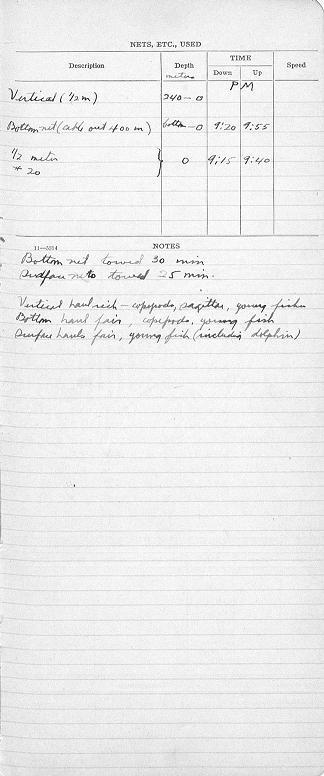 NETS, ETC., USED
Description Depth TIME Speed
meters Down Up
P M
Vertical (1/2 m) 240-0
Bottom net (cable out 400 m) bottom-0 9:20 9:55
1/2 meter } 0 9:15 9:40
# 20
11—5514 NOTES
Bottom net towed 30 min
Surface nets towed 25 min.
Vertical haul rich - copepods, sagittae, young fishes
Bottom haul fair, copepods, young fish
Surface hauls fair, young fish (including dolphin)